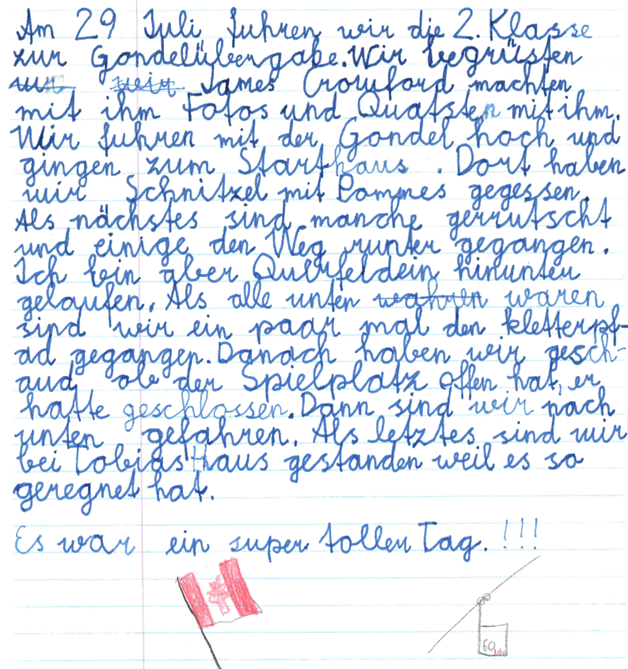 Am 29 Juli fuhren wir die 2. Klasse
zur Gondelübergabe. Wir begrüsten
James Crowford machten
mit ihm Fotos und Quatsten mit ihm.
Wir fuhren mit der Gondel hoch und
gingen zum Starthaus. Dort haben
wir Schnitzel mit Pommes gegessen.
Als nächstes sind manche gerrutscht
und einige den Weg runter gegangen.
Ich bin aber Querfeldein hinunter
gelaufen. Als alle unten wahren waren
sind wir ein paar mal den kletterpf-
ad gegangen. Danach haben wir gesch-
aud ob der Spielplatz offen hat, er
hatte geschlossen. Dann sind wir nach
unten gefahren. Als letztes sind wir
bei Tobias Haus gestanden weil es so
geregnet hat.
Es war ein super tollen Tag. !!!
60